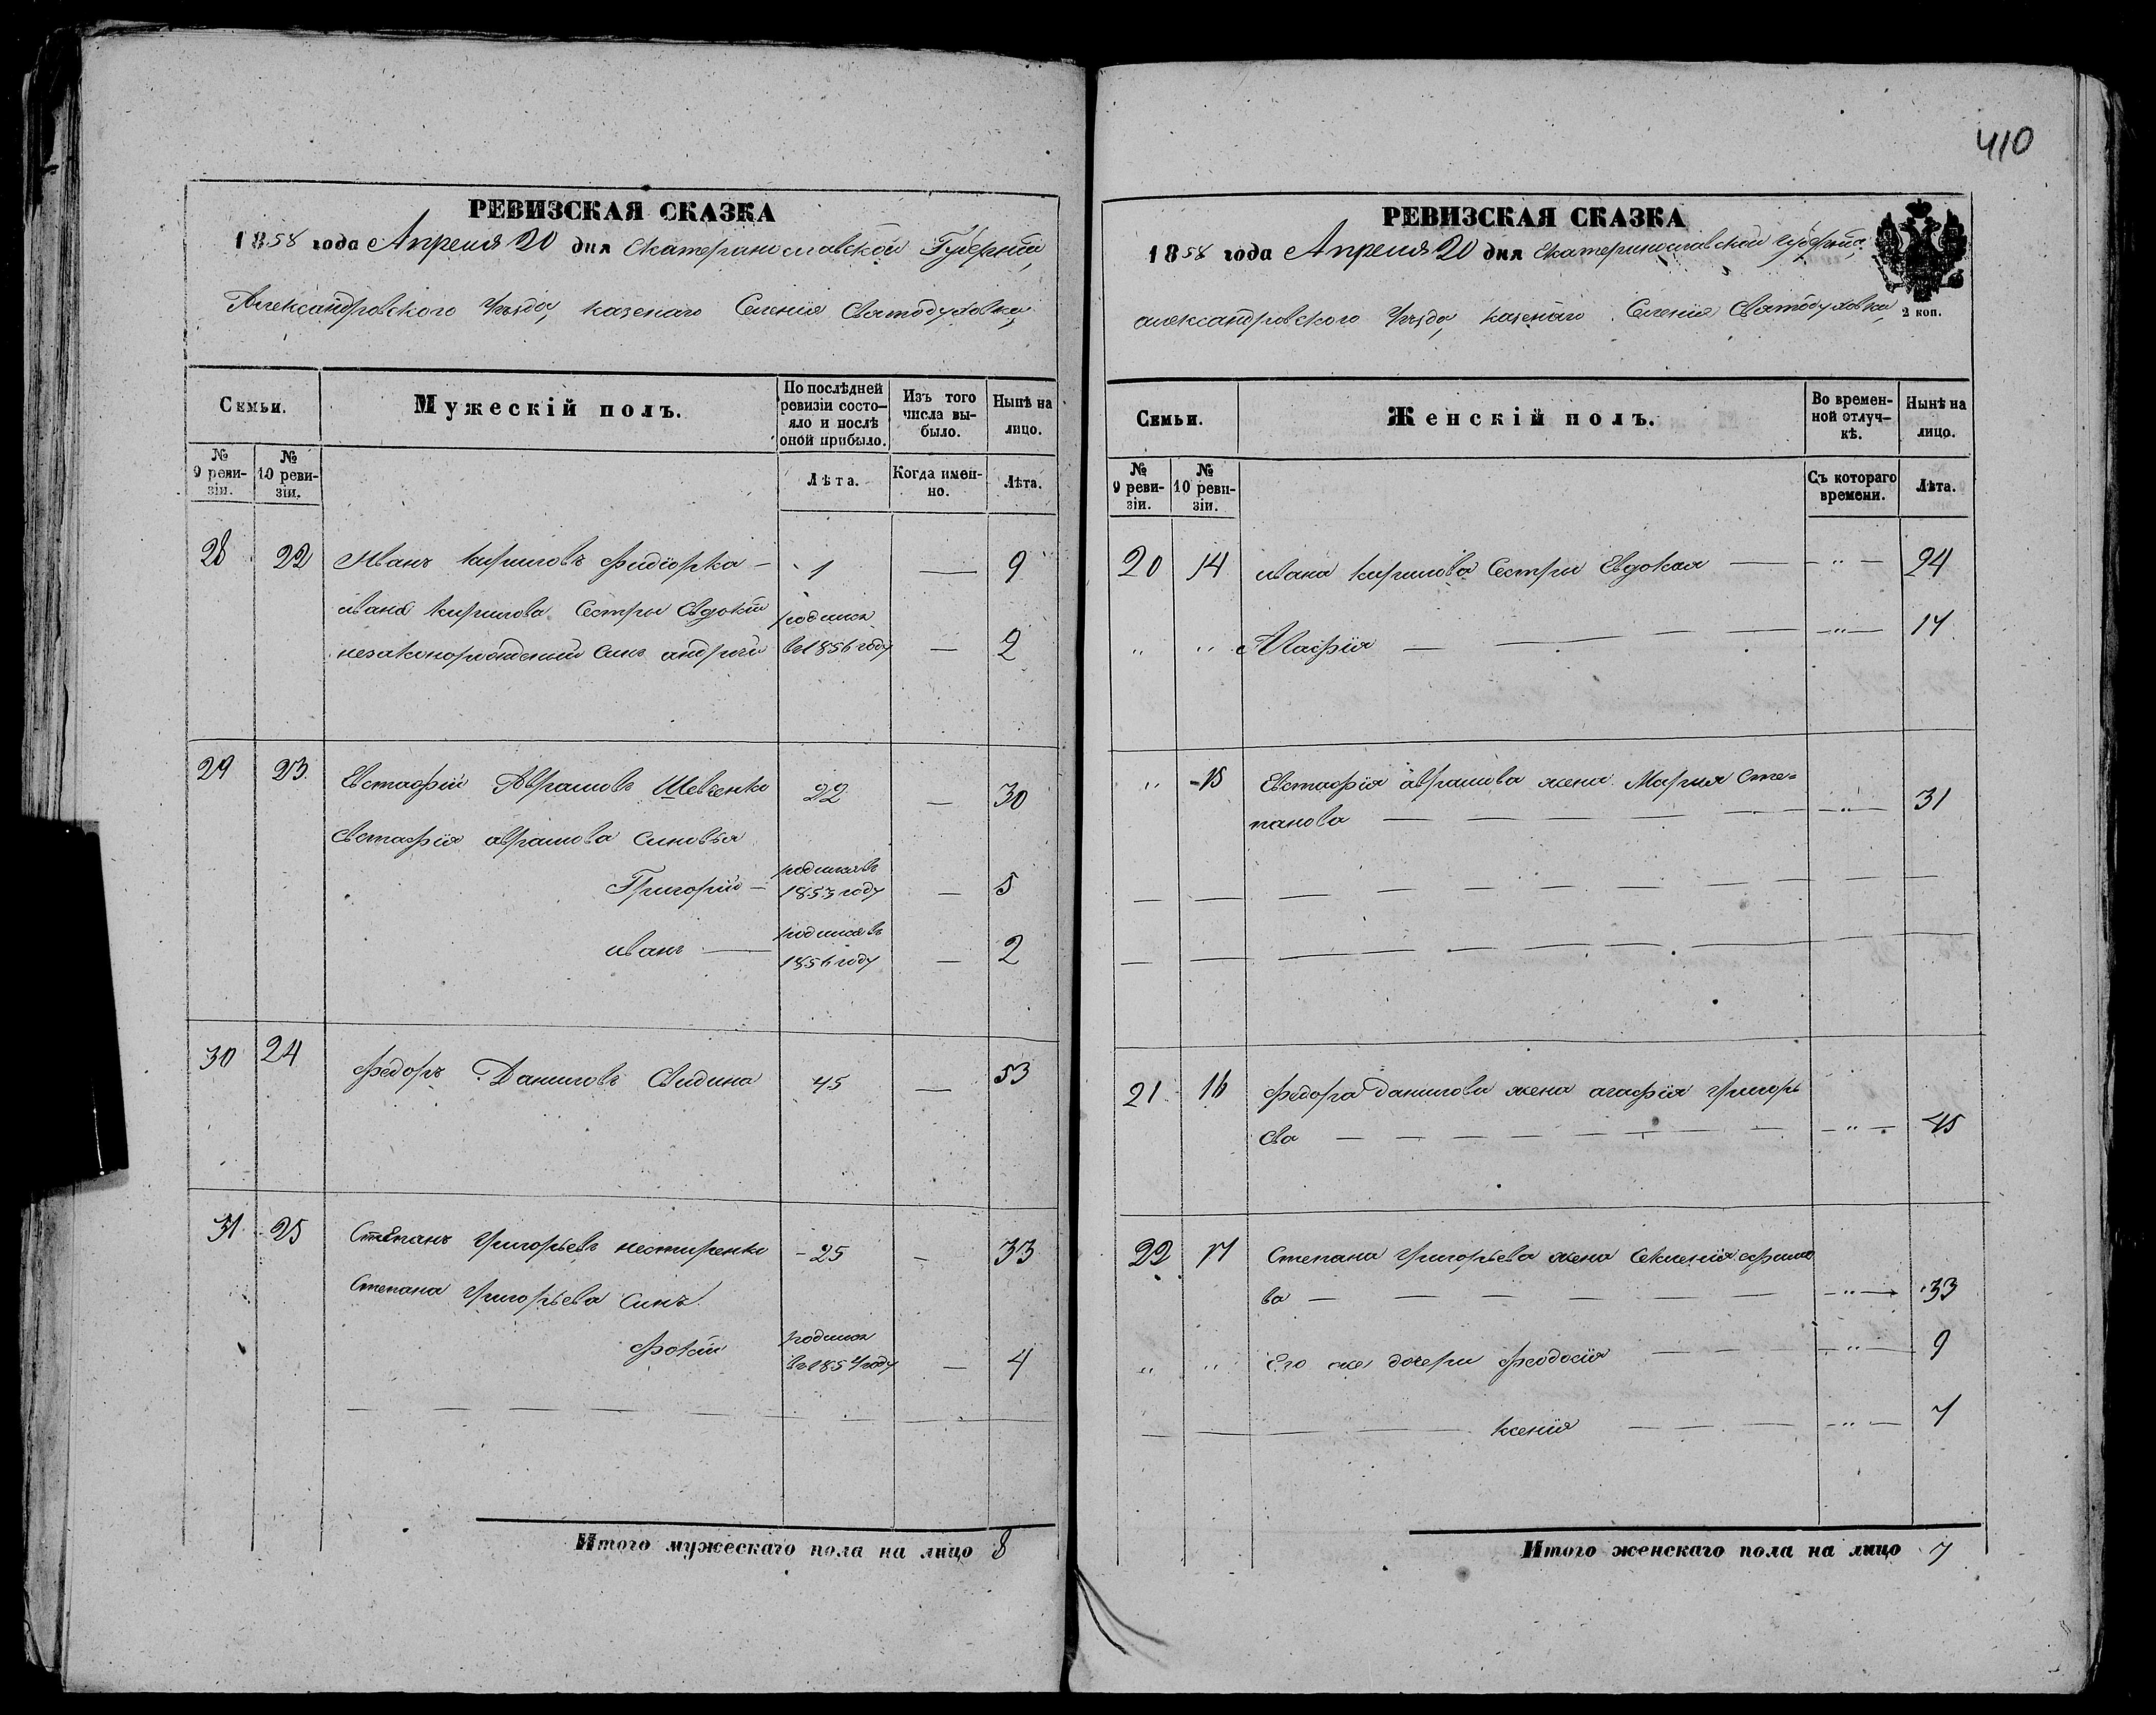 410
РЕВИЗСКАЯ СКАЗКА
1858 года Апреля 20 дня Екатеринославской Губернии,
Александровского Уезда, казенаго Селения Святодуховки,
Семьи.
Мужескій полъ.
По послѣдней ревизіи состо-яло и послѣ оной прибыло.
Изъ того числа вы-было.
Нынѣ на лицо.
№ 9 реви-зіи.
№ 10 реви-зіи.
Лѣта.
Когда имен-но.
Лѣта.
28 22 Иванъ Кириловъ Федіорка — 1 — 9
ивана Кирилова Сестры Евдокіи родился
незаконорожденный Синъ андрей в 1856 году — 2
29 23 Евстафій Аврамовъ Шевченко 22 — 30
Евстафія аврамова синовья
Григорій — родился въ 1853 году — 5
иванъ — родился въ 1856 году — 2
30 24 Федоръ Даниловъ 45 — 53
31 25 Степанъ Григорьевъ нестиренко - 25 — 33
Степана Григорьева Синъ
Фокій родился в 1854 году — 4
Итого мужескаго пола на лицо 8
РЕВИЗСКАЯ СКАЗКА
1858 года Апреля 20 дня Екатеринославской губернии,
александровского Уезда, казенаго Селения Святодуховки,
2 коп.
Семьи.
Женскій полъ.
Во времен-ной отлуч-кѣ.
Нынѣ на лицо.
№ 9 реви-зіи.
№ 10 реви-зіи.
Съ котораго времени.
Лѣта.
20 14 ивана Кирилова Сестры Евдокия — — „ — 24
„ „ — — „ — 17
„ 15 Евстафія аврамова жена Мария Сте=
панова — — „ — 31
21 16 Федора Данилова жена агафія Григорь
ева — — „ — 45
22 17 Степана Григорьева жена
ва — — „ — 33
„ „ Его же дочери Феодосія — — „ — 9
ксенія — — „ — 7
Итого женскаго пола на лицо 7